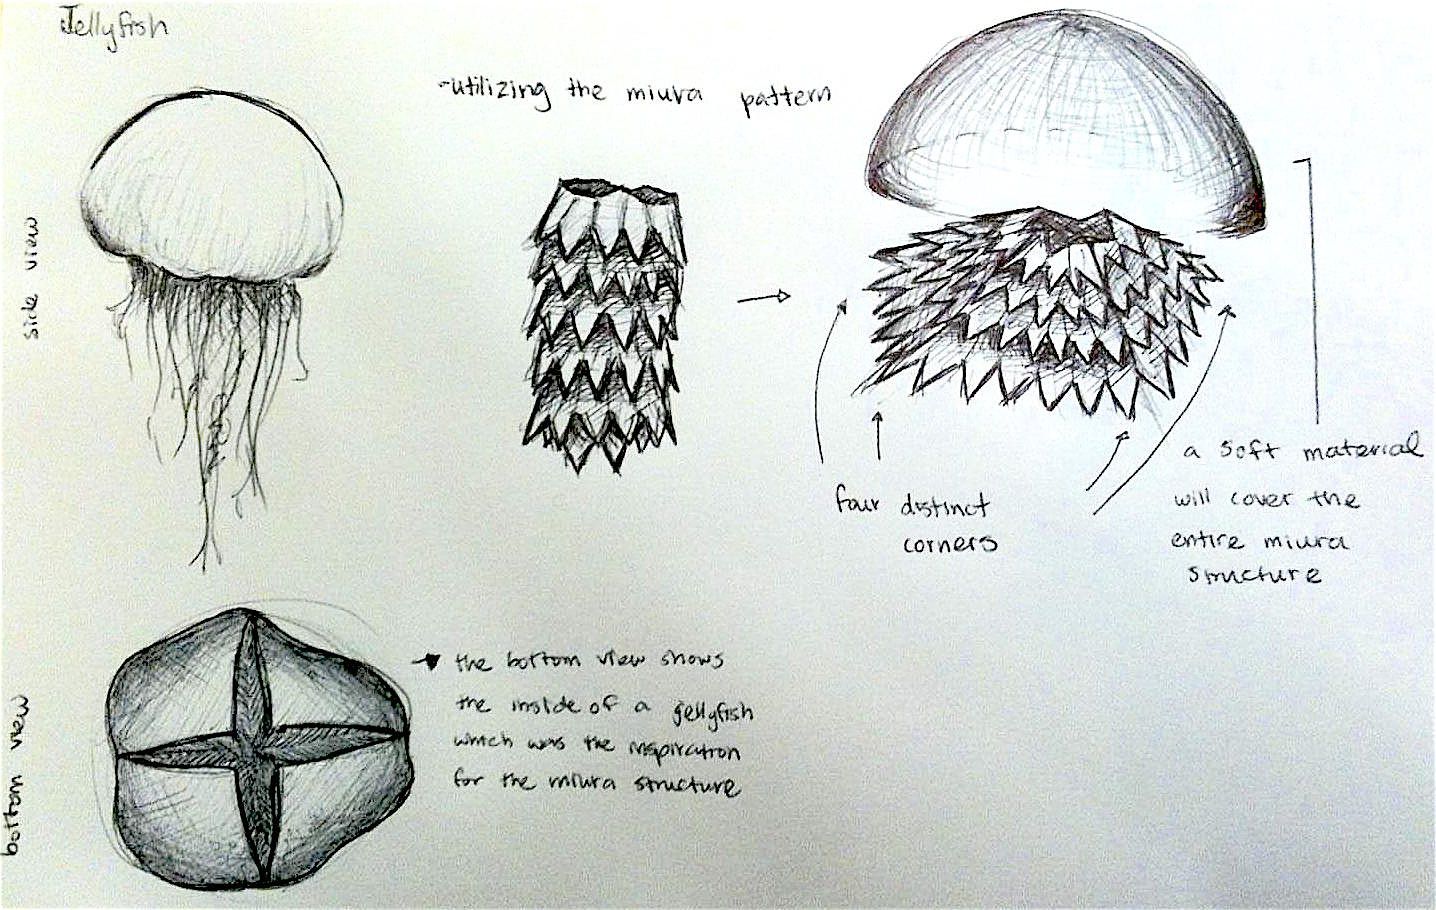 Jellyfish
-utilizing the miura pattern
side view
four distinct
corners
a soft material
will cover the
entire miura
structure
bottom view
the bottom view shows
the inside of a jellyfish
which was the inspiration
for the miura structure